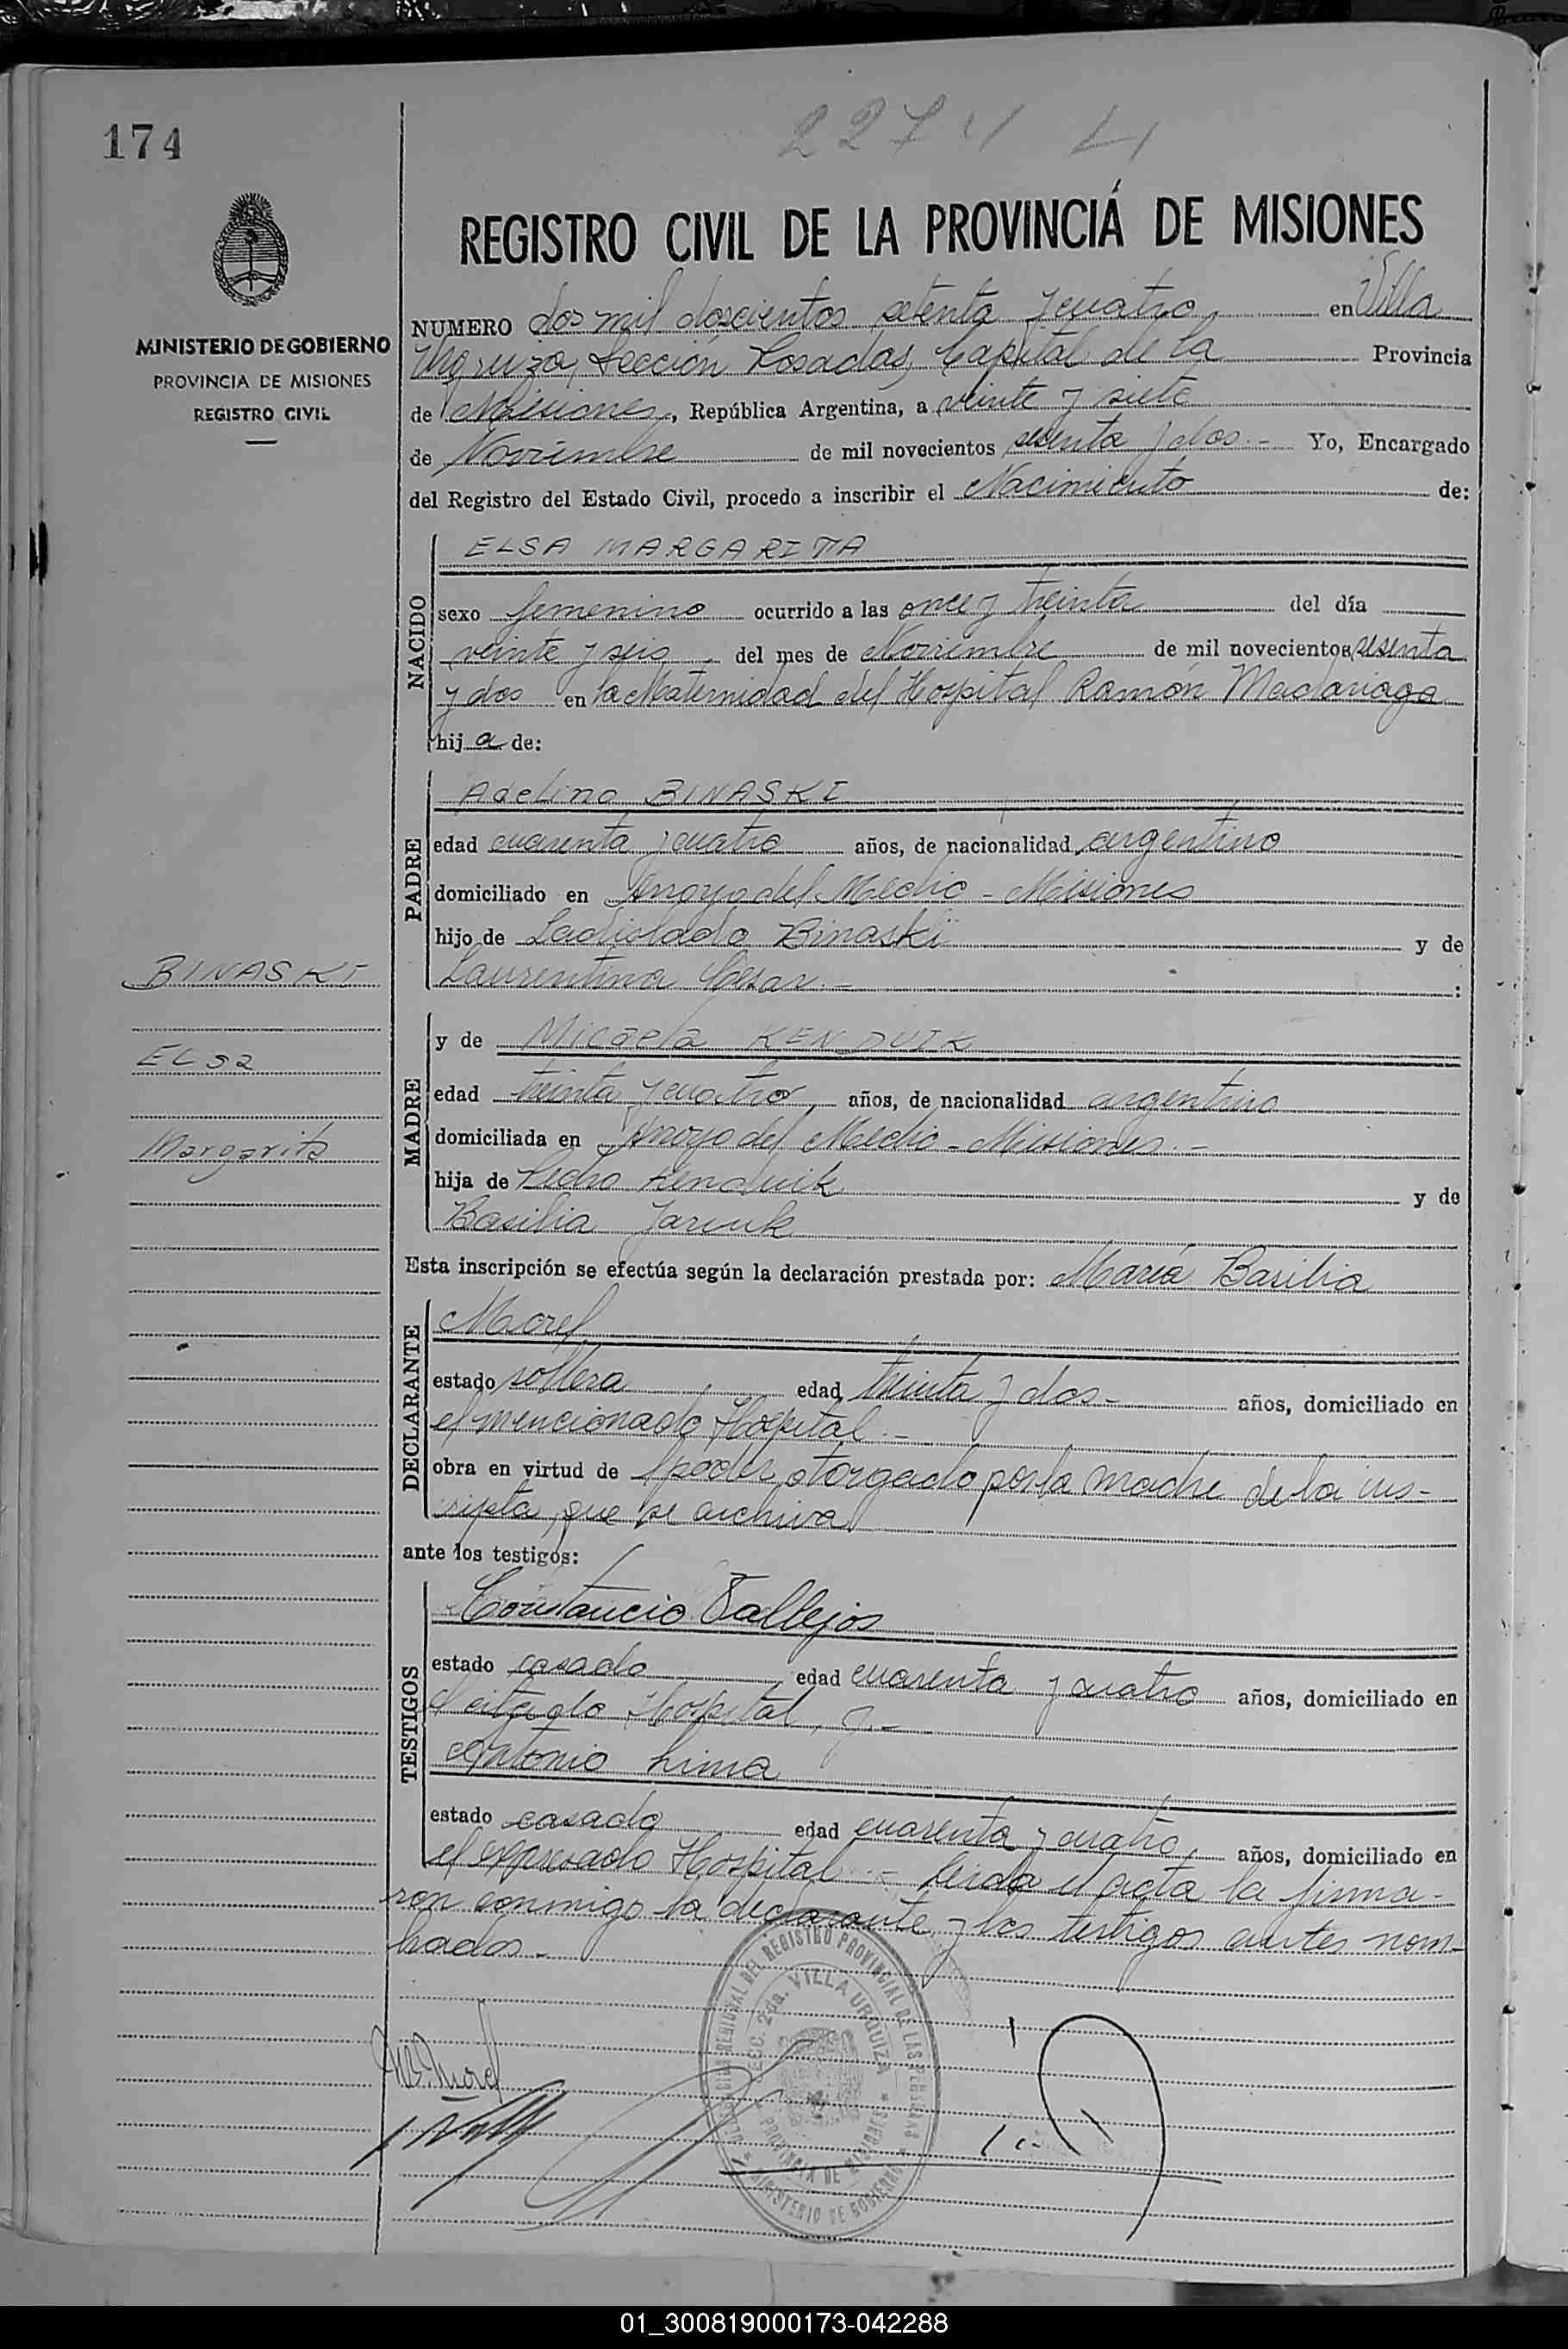 174
2274
REGISTRO CIVIL DE LA PROVINCIA DE MISIONES
MINISTERIO DE GOBIERNO
PROVINCIA DE MISIONES
REGISTRO CIVIL
NUMERO dos mil doscientos setenta y cuatro en Villa
Urquiza, Sección Posadas, Capital de la Provincia
de Misiones, República Argentina, a veinte y siete
de Noviembre de mil novecientos sesenta y dos.- Yo, Encargado
del Registro del Estado Civil, procedo a inscribir el Nacimiento de:
NACIDO
ELSA MARGARITA
sexo femenino ocurrido a las once y treinta del día
veinte y seis del mes de Noviembre de mil novecientos sesenta
y dos en la Maternidad del Hospital Ramón Madariaga
hij a de:
PADRE
Adelino BINASKI
edad cuarenta y cuatro años, de nacionalidad argentino
domiciliado en Arroyo del Medio - Misiones
hijo de Ladislado Binaski y de
Laurentina Cesar.- :
BINASKI
ELSa
Margarita
MADRE
y de Micaela KENDUIK
edad treinta y cuatro años, de nacionalidad argentina
domiciliada en Arroyo del Medio - Misiones.-
hija de Pedro Kenduik y de
Basilia
Esta inscripción se efectúa según la declaración prestada por: María Basilia
DECLARANTE
Morel
estado soltera edad treinta y dos- años, domiciliado en
el mencionado Hospital.-
obra en virtud de poder otorgado por la madre de la ins-
cripta, que se archiva
ante los testigos:
TESTIGOS
Constancio Vallejos
estado casado edad cuarenta y cuatro años, domiciliado en
el citado Hospital, y.-
Antonio Lima
estado casado edad cuarenta y cuatro años, domiciliado en
el expresado Hospital.- Leida el acta la firma-
ron conmigo la declarante y los testigos antes nom-
brados.-
M.B. Morel
REGIONAL DEL REGISTRO PROVINCIAL DE LAS PERSONAS
SECC. 2da. VILLA URQUIZA
PROVINCIA DE MISIONES
MINISTERIO DE GOBIERNO
01_300819000173-042288